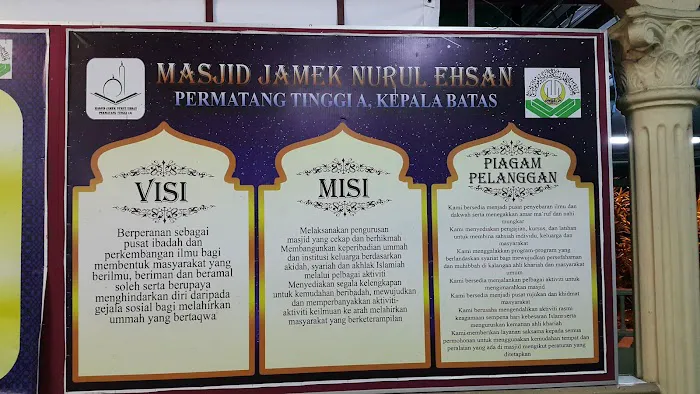 MASJID JAMEK NURUL EHSAN
PERMATANG TINGGI A, KEPALA BATAS
MASJID JAMEK NURUL EHSAN
PERMATANG TINGGI A
VISI
Berperanan sebagai
pusat ibadah dan
perkembangan ilmu bagi
membentuk masyarakat yang
berilmu, beriman dan beramal
soleh serta berupaya
menghindarkan diri daripada
gejala sosial bagi melahirkan
ummah yang bertaqwa
MISI
Melaksanakan pengurusan
masjid yang cekap dan berhikmah
Membangunkan keperibadian ummah
dan institusi keluarga berdasarkan
akidah, syariah dan akhlak Islamiah
melalui pelbagai aktiviti
Menyediakan segala kelengkapan
untuk kemudahan beribadah, mewujudkan
dan memperbanyakkan aktiviti-
aktiviti keilmuan ke arah melahirkan
masyarakat yang berketerampilan
PIAGAM
PELANGGAN
Kami bersedia menjadi pusat penyebaran ilmu dan
dakwah serta menegakkan amar ma'ruf dan nahi
mungkar
Kami menyediakan pengajian, kursus, dan latihan
untuk membina sahsiah individu, keluarga dan
masyarakat
Kami menggalakkan program-program yang
berlandaskan syariat bagi mewujudkan persefahaman
dan muhibbah di kalangan ahli khariah dan masyarakat
umum
Kami bersedia menjalankan pelbagai aktiviti untuk
mengimarahkan masjid
Kami bersedia menjadi pusat rujukan dan khidmat
masyarakat
Kami berusaha mengendalikan aktiviti
keagamaan sempena hari kebesaran Islam serta
menguruskan kematian ahli khariah
Kami memberikan layanan saksama kepada semua
permohonan untuk menggunakan kemudahan tempat dan
peralatan yang ada di masjid mengikut peraturan yang
ditetapkan